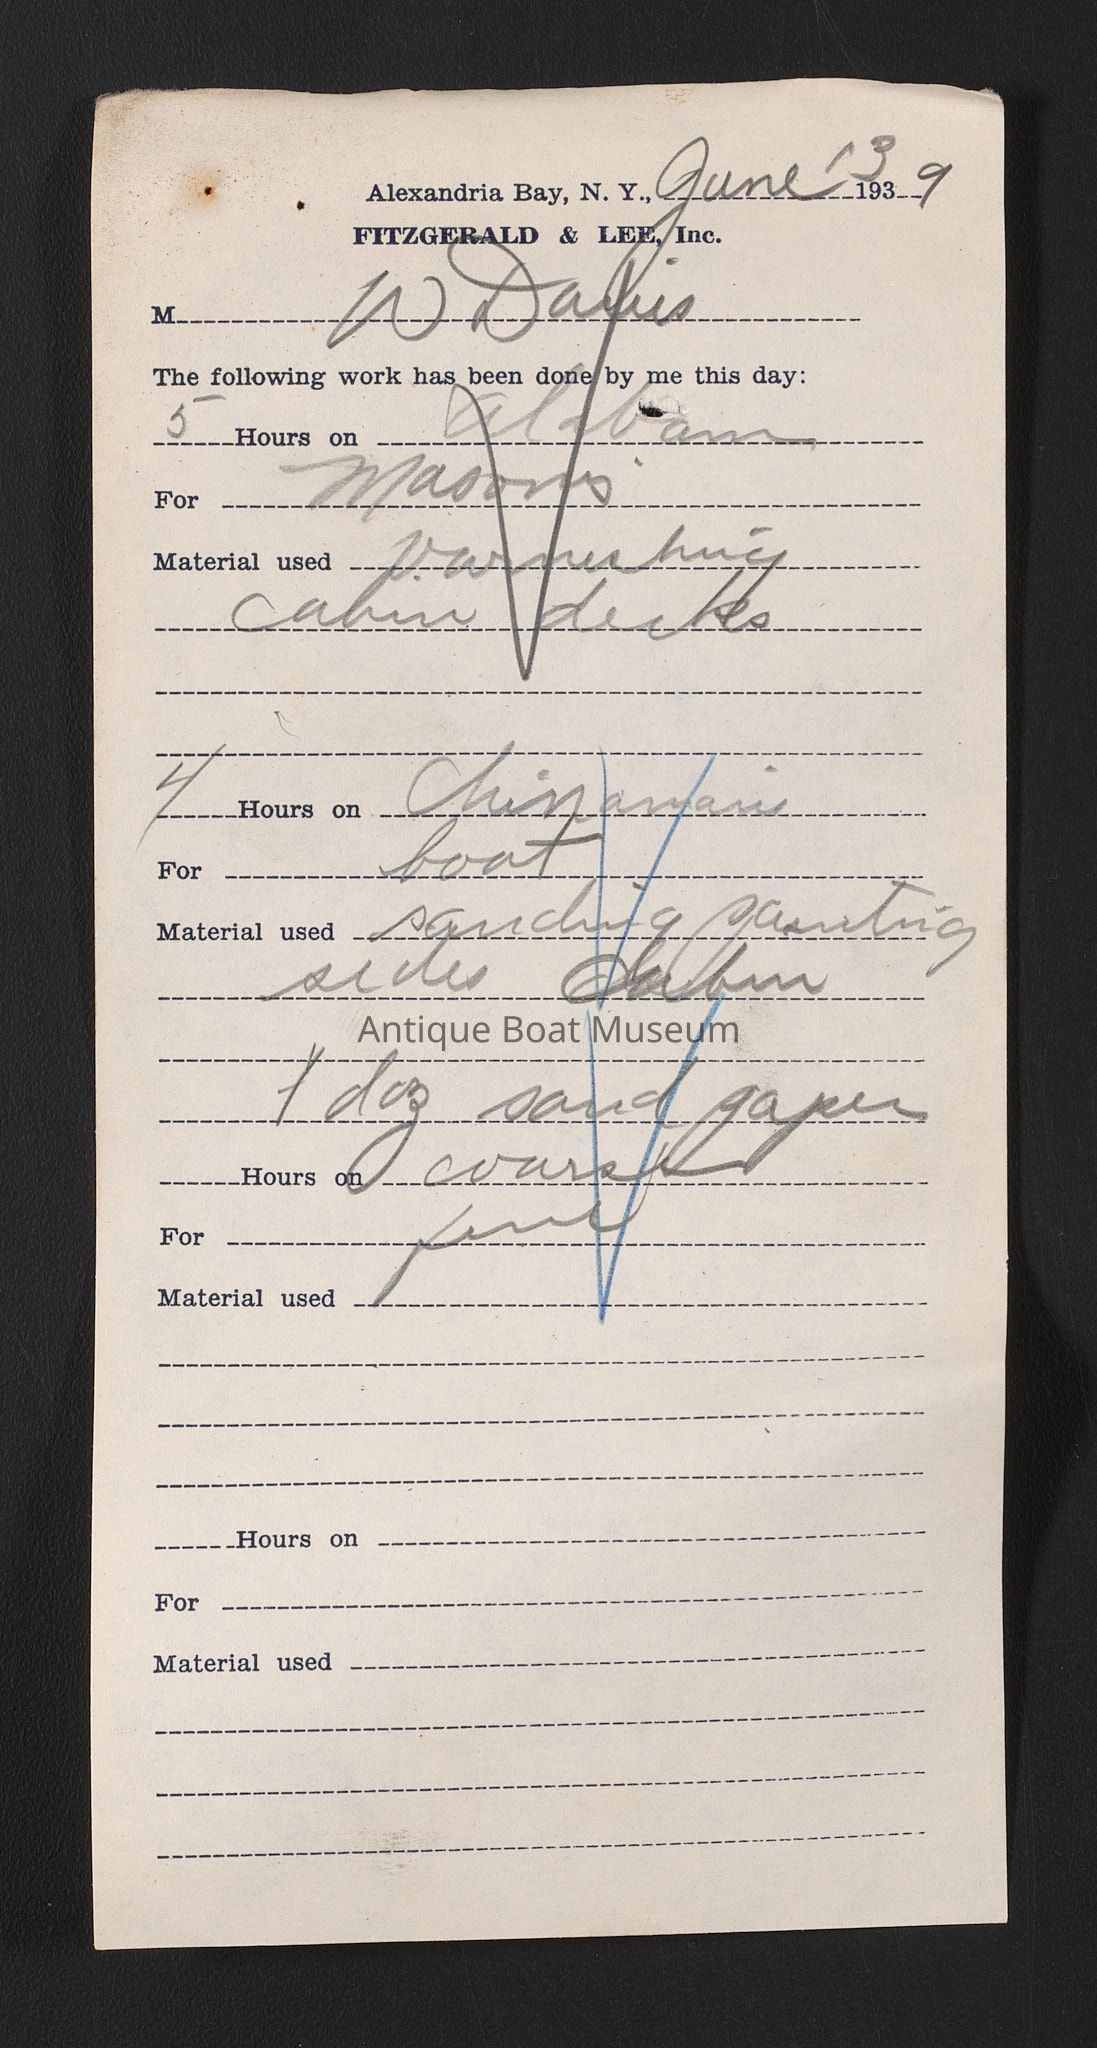 Alexandria Bay, N. Y., June 13 1939
FITZGERALD & LEE, Inc.
M W Davis
The following work has been done by me this day:
5 Hours on Alabam
For Masons
Material used varnishing
cabin decks
4 Hours on Chinamans
For boat
Material used sanding painting
sides Cabin
Antique Boat Museum
1 doz sand paper
Hours on course
For fine
Material used
Hours on
For
Material used